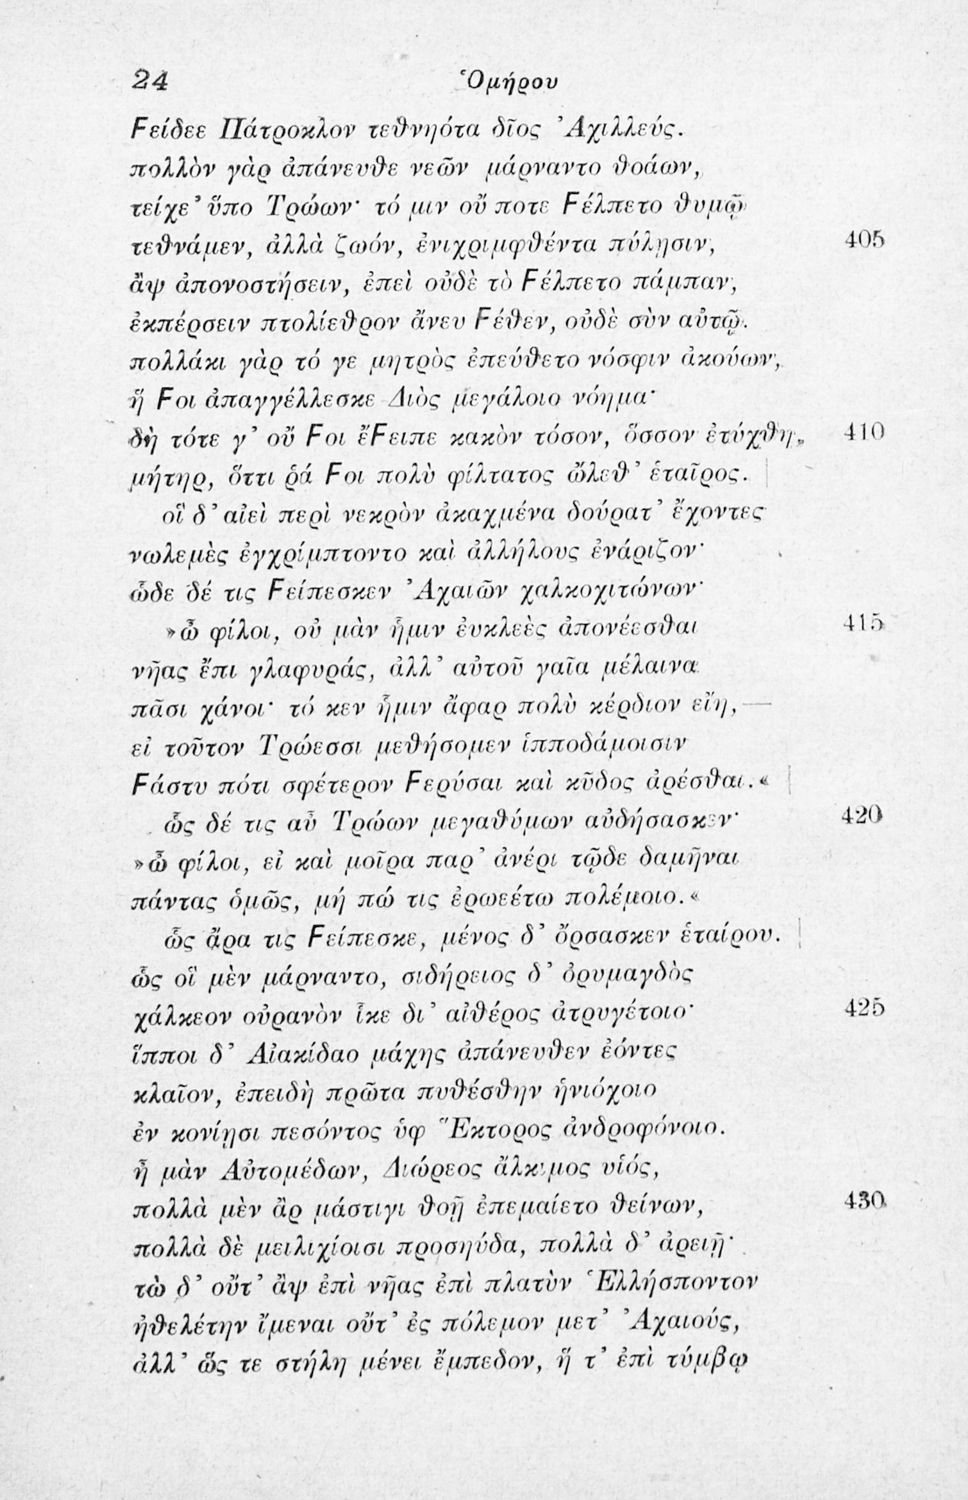 24 Ὁμήρου
Ϝείδεε Πάτροκλον τεθνηότα δῖος Ἀχιλλεύς.
πολλὸν γὰρ ἀπάνευθε νεῶν μάρναντο θοάων,
τείχε᾽ ὕπο Τρώων· τό μιν οὔ ποτε Ϝέλπετο θυμῷ
τεθνάμεν, ἀλλὰ ζωόν, ἐνιχριμφθέντα πύλῃσιν, 405
ἂψ ἀπονοστήσειν, ἐπεὶ οὐδὲ τὸ Ϝέλπετο πάμπαν,
ἐκπέρσειν πτολίεθρον ἄνευ Ϝέθεν, οὐδὲ σὺν αὐτῷ.
πολλάκι γὰρ τό γε μητρὸς ἐπεύθετο νόσφιν ἀκούων,
ἥ Ϝοι ἀπαγγέλλεσκε Διὸς μεγάλοιο νόημα·
δὴ τότε γ᾽ οὔ Ϝοι ἔϜειπε κακὸν τόσον, ὅσσον ἐτύχθη, 410
μήτηρ, ὅττι ῥά Ϝοι πολὺ φίλτατος ὤλεθ᾽ ἑταῖρος.
οἳ δ᾽ αἰεὶ περὶ νεκρὸν ἀκαχμένα δούρατ᾽ ἔχοντες
νωλεμὲς ἐγχρίμπτοντο καὶ ἀλλήλους ἐνάριζον·
ὧδε δέ τις Ϝείπεσκεν Ἀχαιῶν χαλκοχιτώνων·
»ὦ φίλοι, οὐ μὰν ἧμιν ἐυκλεὲς ἀπονέεσθαι 415
νῆας ἔπι γλαφυράς, ἀλλ᾽ αὐτοῦ γαῖα μέλαινα
πᾶσι χάνοι· τό κεν ἧμιν ἄφαρ πολὺ κέρδιον εἴη,
εἰ τοῦτον Τρώεσσι μεθήσομεν ἱπποδάμοισιν
Ϝάστυ πότι σφέτερον Ϝερύσαι καὶ κῦδος ἀρέσθαι.«
ὣς δέ τις αὖ Τρώων μεγαθύμων αὐδήσασκεν· 420
»ὦ φίλοι, εἰ καὶ μοῖρα παρ᾽ ἀνέρι τῷδε δαμῆναι
πάντας ὁμῶς, μή πώ τις ἐρωεέτω πολέμοιο.«
ὣς ἄρα τις Ϝείπεσκε, μένος δ᾽ ὄρσασκεν ἑταίρου.
ὣς οἳ μὲν μάρναντο, σιδήρειος δ᾽ ὀρυμαγδὸς
χάλκεον οὐρανὸν ἷκε δι᾽ αἰθέρος ἀτρυγέτοιο· 425
ἵπποι δ᾽ Αἰακίδαο μάχης ἀπάνευθεν ἐόντες
κλαῖον, ἐπειδὴ πρῶτα πυθέσθην ἡνιόχοιο
ἐν κονίῃσι πεσόντος ὑφ Ἕκτορος ἀνδροφόνοιο.
ἦ μὰν Αὐτομέδων, Διώρεος ἄλκιμος υἱός,
πολλὰ μὲν ἂρ μάστιγι θοῇ ἐπεμαίετο θείνων, 430
πολλὰ δὲ μειλιχίοισι προσηύδα, πολλὰ δ᾽ ἀρειῇ·
τὼ δ᾽ οὔτ᾽ ἂψ ἐπὶ νῆας ἐπὶ πλατὺν Ἑλλήσποντον
ἠθελέτην ἴμεναι οὔτ᾽ ἐς πόλεμον μετ᾽ Ἀχαιούς,
ἀλλ᾽ ὥς τε στήλη μένει ἔμπεδον, ἥ τ᾽ ἐπὶ τύμβῳ